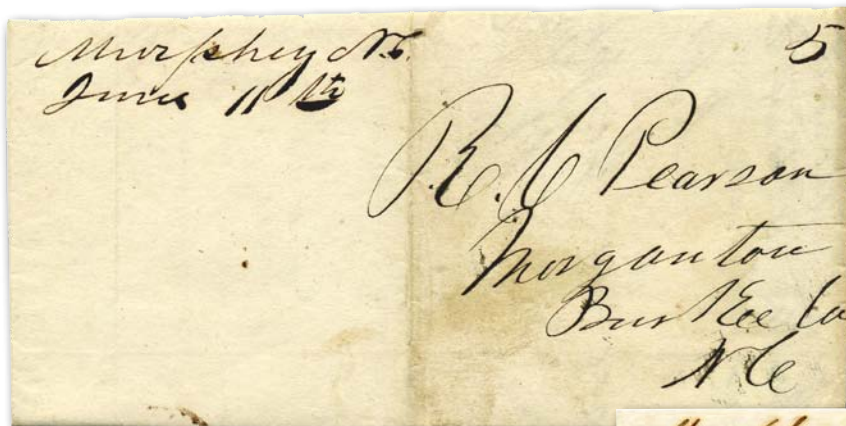 Murphey N.C.
June 11th
5
R. C Pearson
Morganton
Burkee Co
N C